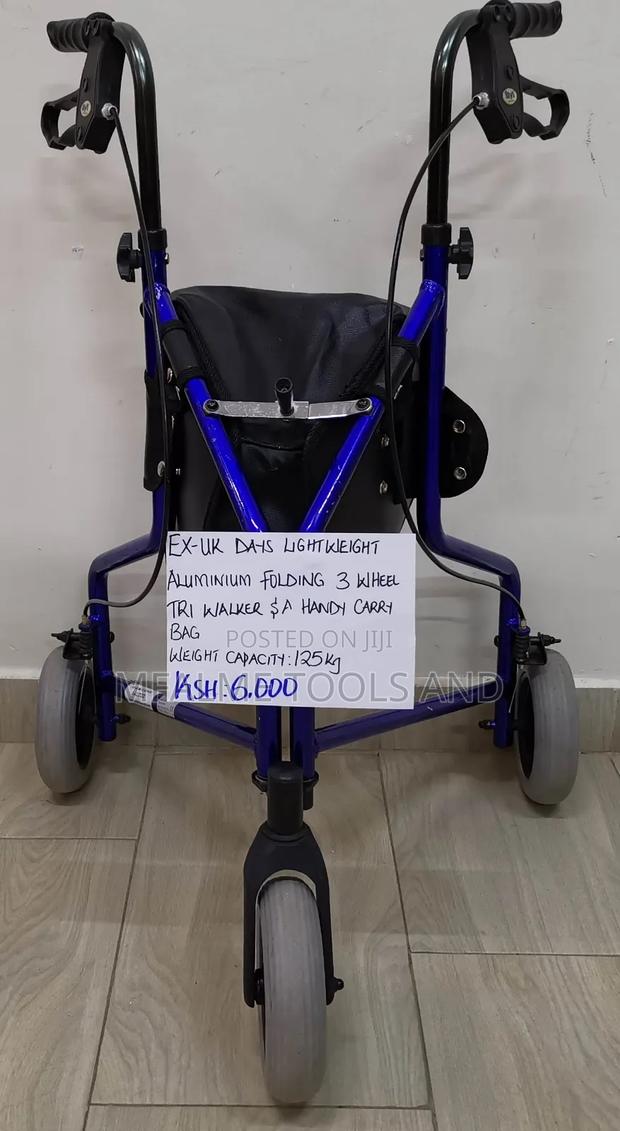 EX-UK DAYS LIGHTWEIGHT
ALUMINIUM FOLDING 3 WHEEL
TRI WALKER & A HANDY CARRY
BAG
POSTED ON JIJI
WEIGHT CAPACITY: 125kg
TOOLS AND
KSH: 6.000